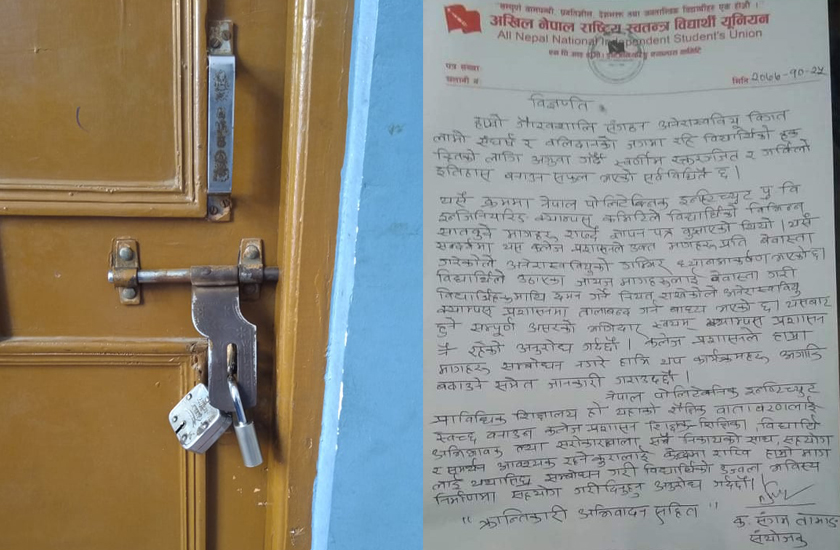 "सम्पूर्ण वामपन्थी, प्रगतिशील, देशभक्त तथा जनतान्त्रिक विद्यार्थीहरु एक होऔं !"
अखिल नेपाल राष्ट्रिय स्वतन्त्र विद्यार्थी यूनियन
All Nepal National Independent Student's Union
पत्र संख्या
चलानी नं.
मितिः २०७७-१०-२५
विज्ञप्ति
हाम्रो गौरवशाली संगठन अनेरास्ववियू विगत
लामो संघर्ष र बलिदानको जगमा रहि विद्यार्थीको हक
हितको लागि अगुवा गर्दै स्वर्णीम रक्तरंजित र गर्विलो
इतिहास बनाउन सफल भएको सर्वविदितै छ।
यसै क्रममा नेपाल पोलिटेक्निक इन्स्टिच्युट पु वि
इन्जिनियरिङ क्याम्पस कमिटिले विद्यार्थीको विभिन्न
मागहरु राख्दै ज्ञापन पत्र बुझाएको थियो। यसै
सन्दर्भमा यस कलेज प्रशासनले उक्त मागहरु प्रति बेवास्ता
गरेकोले अनेरास्ववियुको गम्भिर ध्यानआकर्षण भएको छ।
विद्यार्थीले उठाएका जायज मागहरुलाई बेवास्ता गरी
विद्यार्थीहरुमाथि दमन गर्ने नियत राखेकोले अनेरास्ववियु
क्याम्पस प्रशासनमा तालाबन्द गर्न बाध्य भएको छ। यसबाट
हुने सम्पूर्ण असरको भागिदार स्वयम क्याम्पस प्रशासन
नै रहेको अनुरोध गर्दछौं। कलेज प्रशासनले हाम्रा
मागहरु सम्बोधन नगरे हामि थप कार्यक्रमहरु अगाडि
बढाउने समेत जानकारी गराउदछौं।
नेपाल पोलिटेक्निक इन्स्टिच्युट
प्राविधिक शिक्षालय हो यहाको शैक्षिक वातावरणलाई
स्वच्छ बनाउन कलेज प्रशासन शिक्षक, शिक्षिका, विद्यार्थी
अभिभावक तथा सरोकारवाला सबै निकायको साथ, सहयोग
र समर्थन आवश्यक रहने कुरालाई मध्यनजर राखि हाम्रो माग
लाई यथाशिघ्र सम्बोधन गरी विद्यार्थीको उज्वल भविष्य
निर्माणमा सहयोग गरीदिनुहुन अनुरोध गर्दछौं।
"क्रान्तिकारी अभिवादन सहित"
क. संगम तामाङ
संयोजक